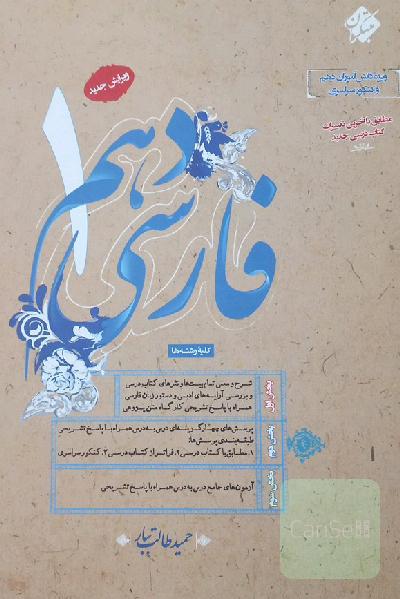 مبتکران
ویژه دانش آموزان دهم
و کنکور سراسری
مطابق با آخرین تغییرات
کتاب درسی جدید
ویرایش جدید
فارسی دهم
۱
کلیه رشته‌ها
بخش اول
شرح و معنی تمام بیت‌ها و نثرهای کتاب درسی
و بررسی آرایه‌های ادبی و دستور زبان فارسی
همراه با پاسخ تشریحی کارگاه متن پژوهی
بخش دوم
پرسش‌های چهارگزینه‌ای درس به درس همراه با پاسخ تشریحی
طبقه‌بندی پرسش‌ها:
۱. مطابق با کتاب درسی ۲. فراتر از کتاب درسی ۳. کنکور سراسری
بخش سوم
آزمون‌های جامع درس به درس همراه با پاسخ تشریحی
حمید طالب تبار
CanSell